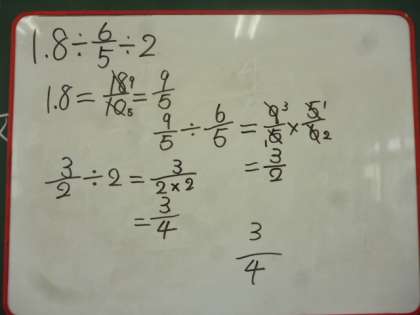 1.8÷6/5÷2
1.8=18/10 9/5=9/5
9/5÷6/5=9/5 3/1×5/6 1/2
=3/2
3/2÷2=3/2×2
=3/4
3/4